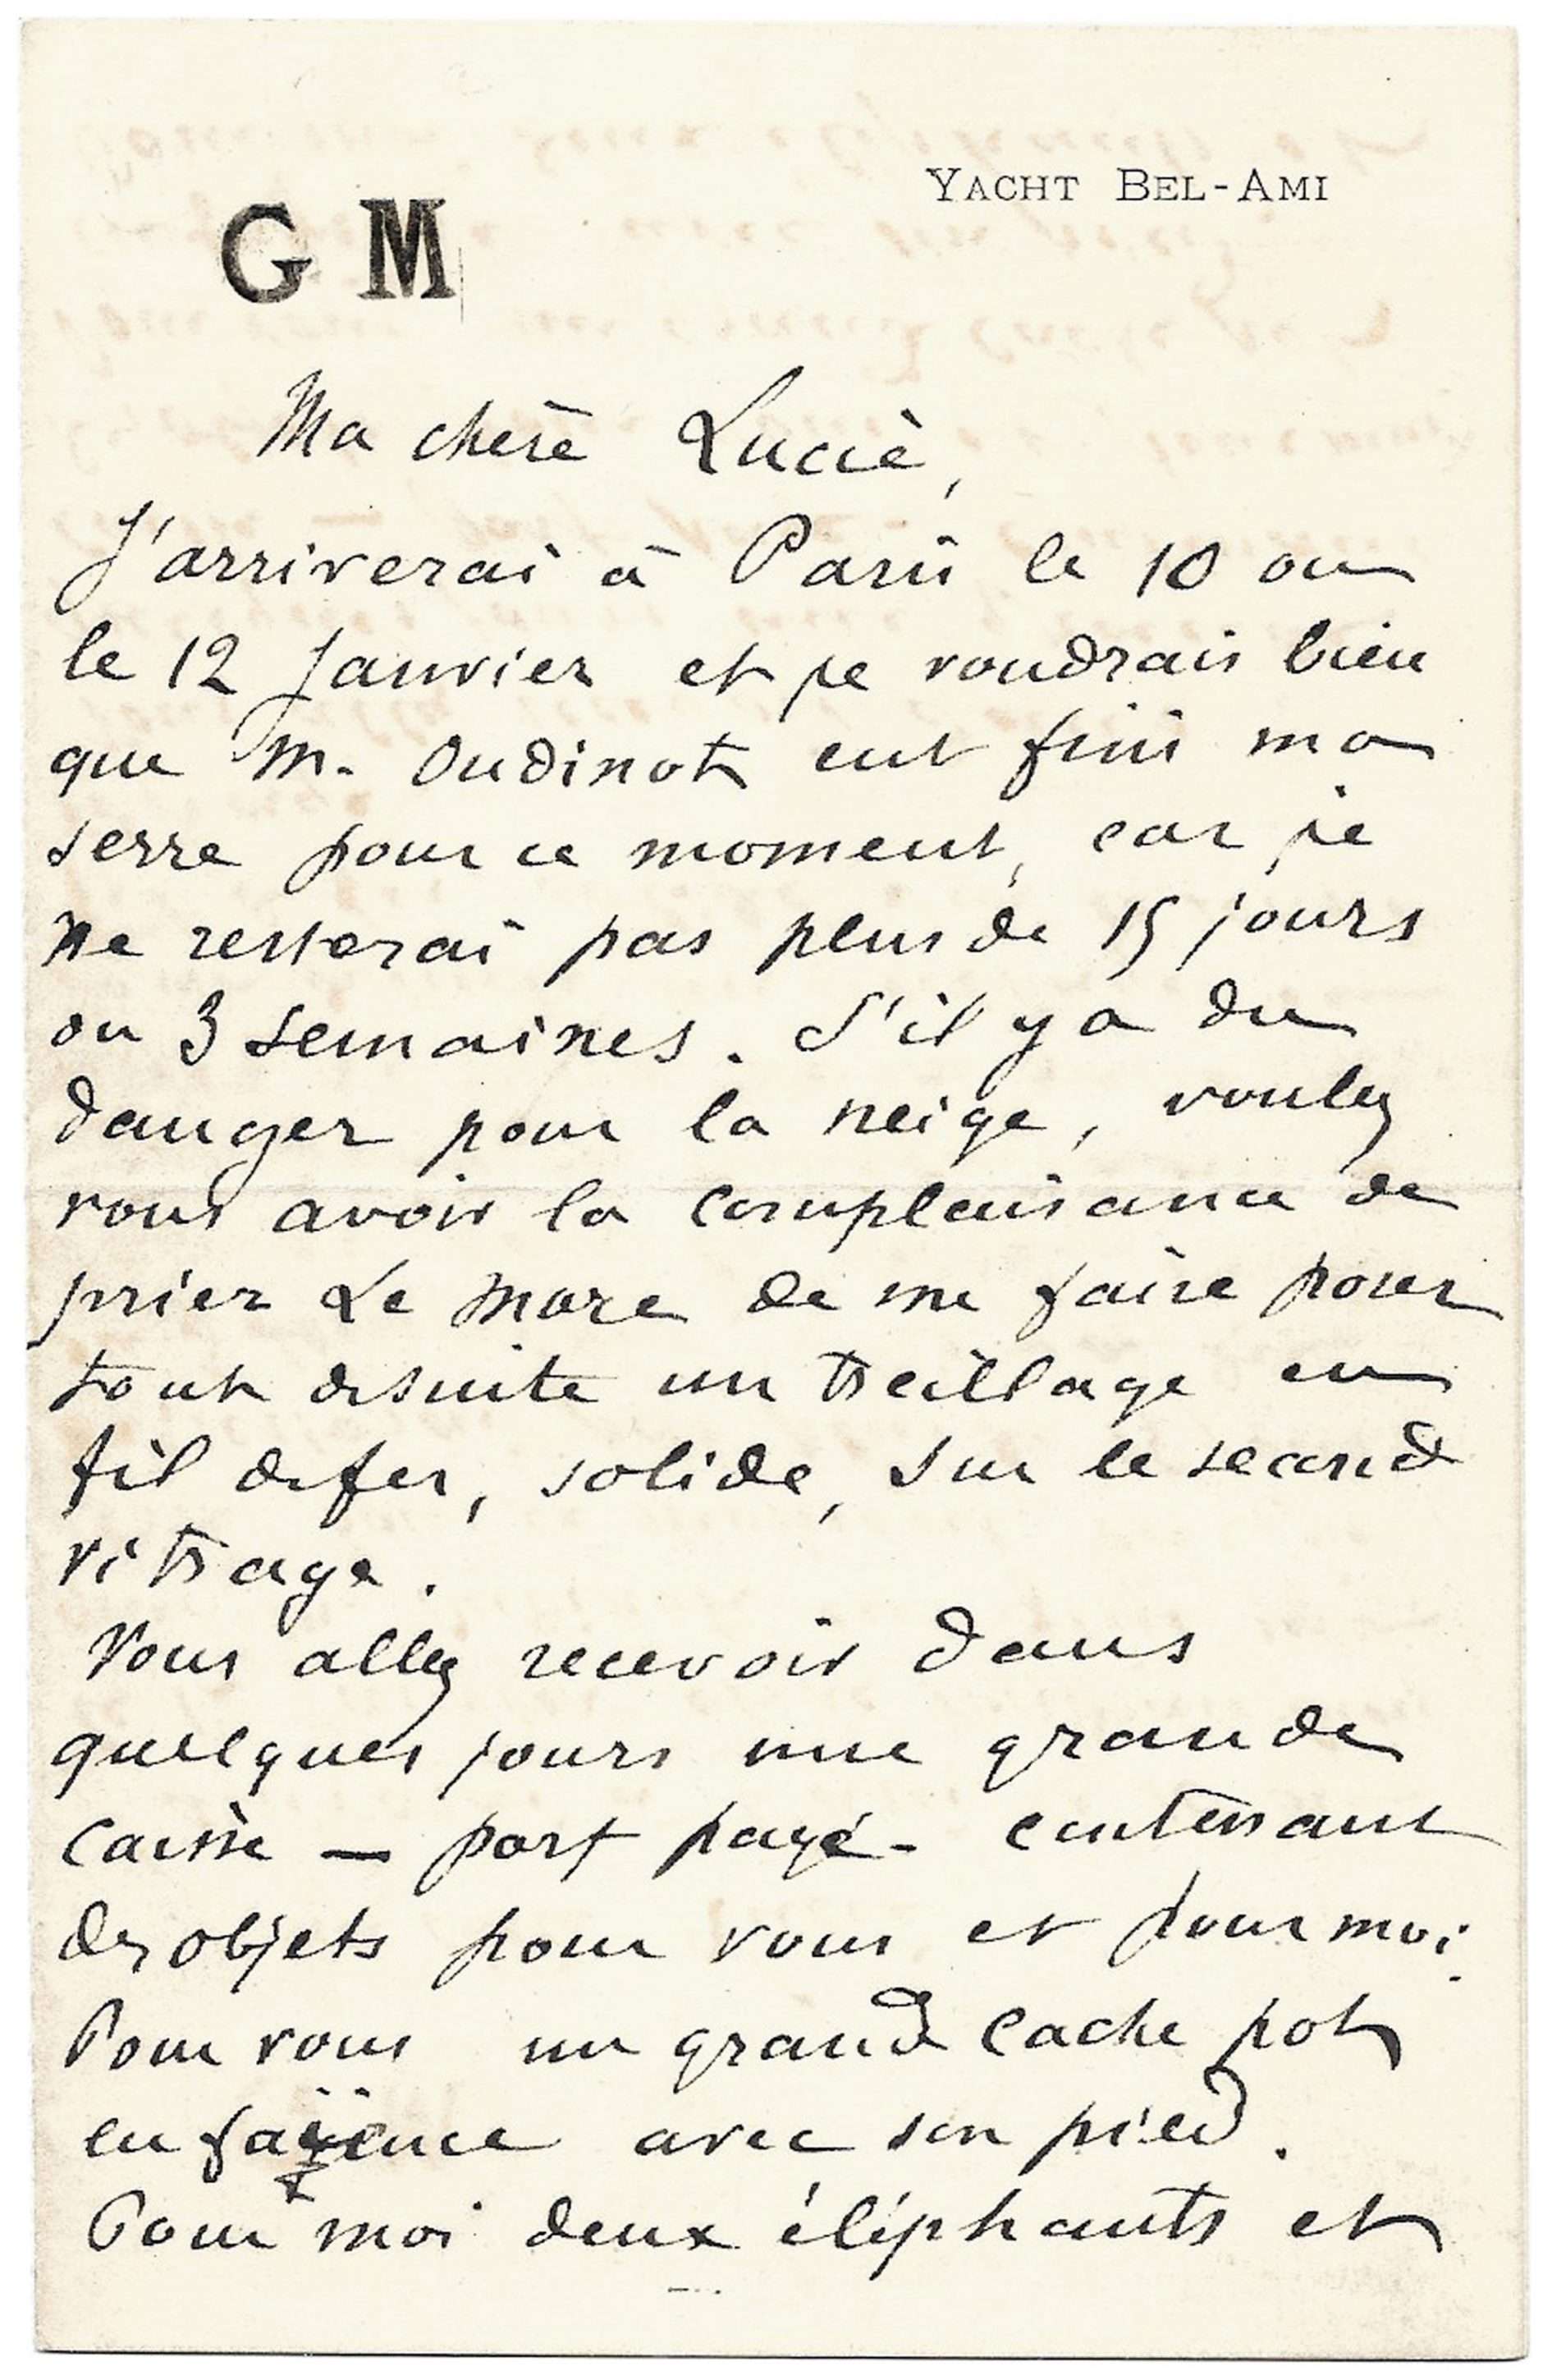 YACHT BEL-AMI
G M
Ma chère Lucie,
J'arriverai à Paris le 10 ou
le 12 Janvier et je voudrais bien
que M. Oudinot eut fini ma
serre pour ce moment, car je
ne resterai pas plus de 15 jours
ou 3 semaines. S'il y a du
danger pour la neige, voulez
vous avoir la complaisance de
prier Le More de me faire poser
tout desuite un treillage en
fil de fer, solide, sur le second
vitrage.
Vous allez recevoir dans
quelques jours une grande
caisse — port payé - contenant
des objets pour vous et pour moi.
Pour vous un grand cache pot
en faïence avec son pied.
Pour moi deux éléphants et